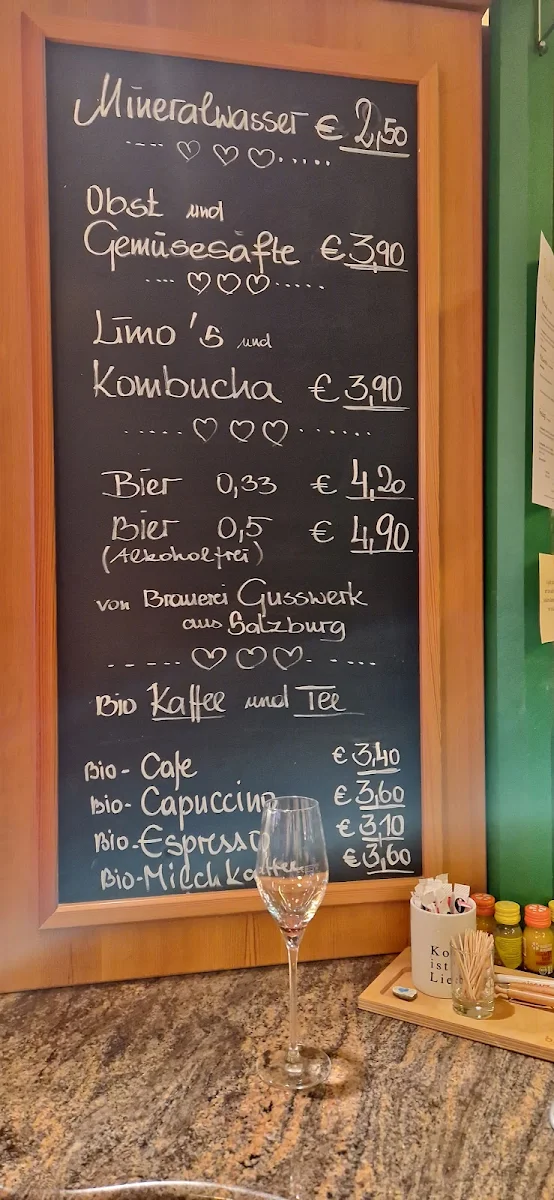 Mineralwasser € 2,50
Obst und
Gemüsesäfte € 3,90
Limo's und
Kombucha € 3,90
Bier 0,33 € 4,20
Bier 0,5 € 4,90
(Alkoholfrei)
von Brauerei Gusswerk
aus Salzburg
Bio Kaffee und Tee
Bio- Cafe € 3,40
Bio- Capuccino € 3,60
Bio- Espresso € 3,10
Bio- Milchkaffee € 3,60
Ko
ist
Lie